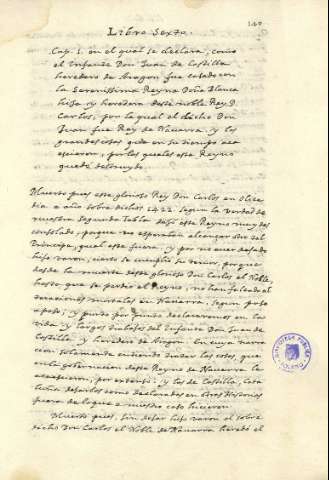 140
Libro Sexto.
Cap. 1. en el qual se declara, como
el Infante Don Juan de Castilla
heredero de Aragon fue casado con
la Serenissima Reyna Doña Blanca
hija y heredera deste noble Rey D.
Carlos, por la qual el dicho Don
Juan fue Rey de Navarra, y los
grandes casos que en su tiempo aca
escieron, por los quales este Reyno
quedó destruydo.
Muerto pues este glorioso Rey Don Carlos en Olite
dia e año sobre dichos 1422. segun la verdad de
nuestra Segunda Tabla dejó este Reyno muy des
consolado, porque no esperaban alcanzar otro tal
Principe, qual este fuera, y por no aver dejado
hijo varon, cierto se cumplió su temor, porque
desde la muerte deste glorioso Don Carlos el Noble,
hasta que se perdio el Reyno, no han faltado al
teraciones mortales en Navarra, segun paso
a paso, y punto por punto declararemos en las
vida y largos trabajos del Infante Don Juan de
Castilla, y heredero de Aragon. En cuya narra
cion solamente entiendo tratar las cosas, que
en la governacion deste Reyno de Navarra le
acaescieron, por extenso, y los de Castilla, Cata
luña dejarlos como declarados en otras Historias
fuera de lo que a nuestro caso hicieren.
Muerto pues, sin dejar hijo varon el sobre
dicho Don Carlos el Noble de Navarra heredó el